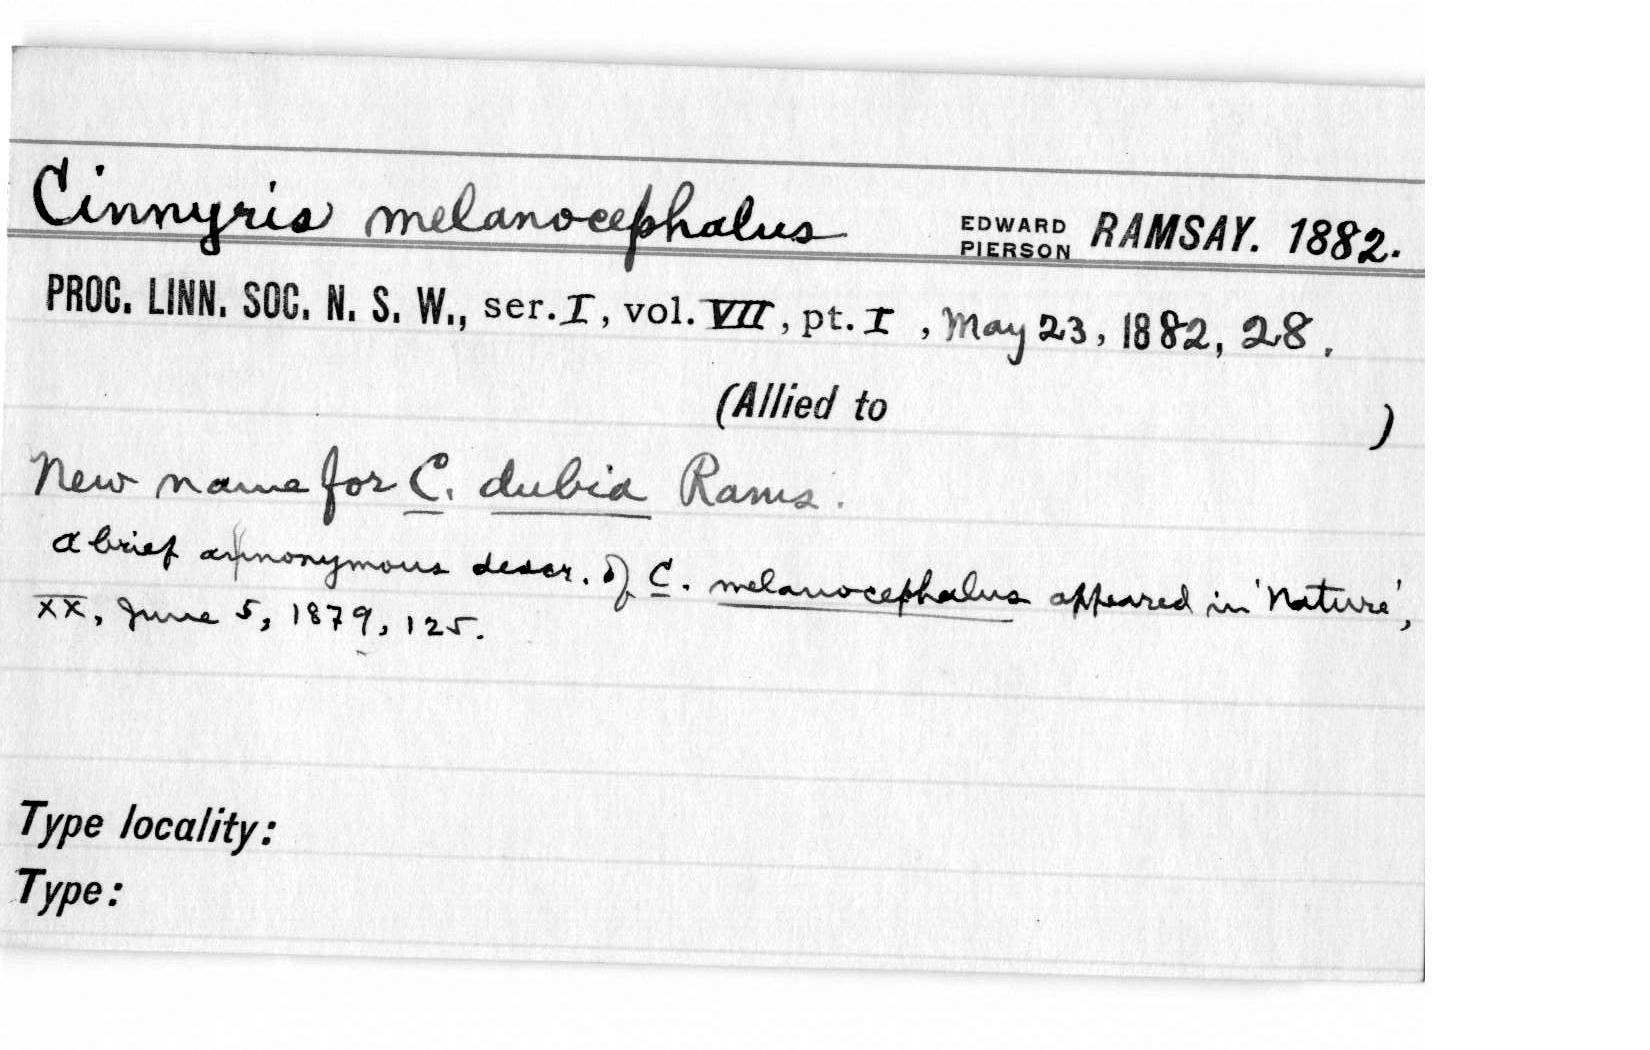 Cinnyris melanocephalus EDWARD PIERSON RAMSAY. 1882.
PROC. LINN. SOC. N. S. W., ser. I, vol. VII, pt. I, May 23, 1882, 28.
(Allied to )
New name for C. dubia Rams.
A brief annonymous descr. of C. melanocephalus appeared in 'Nature',
XX, June 5, 1879, 125.
Type locality:
Type: